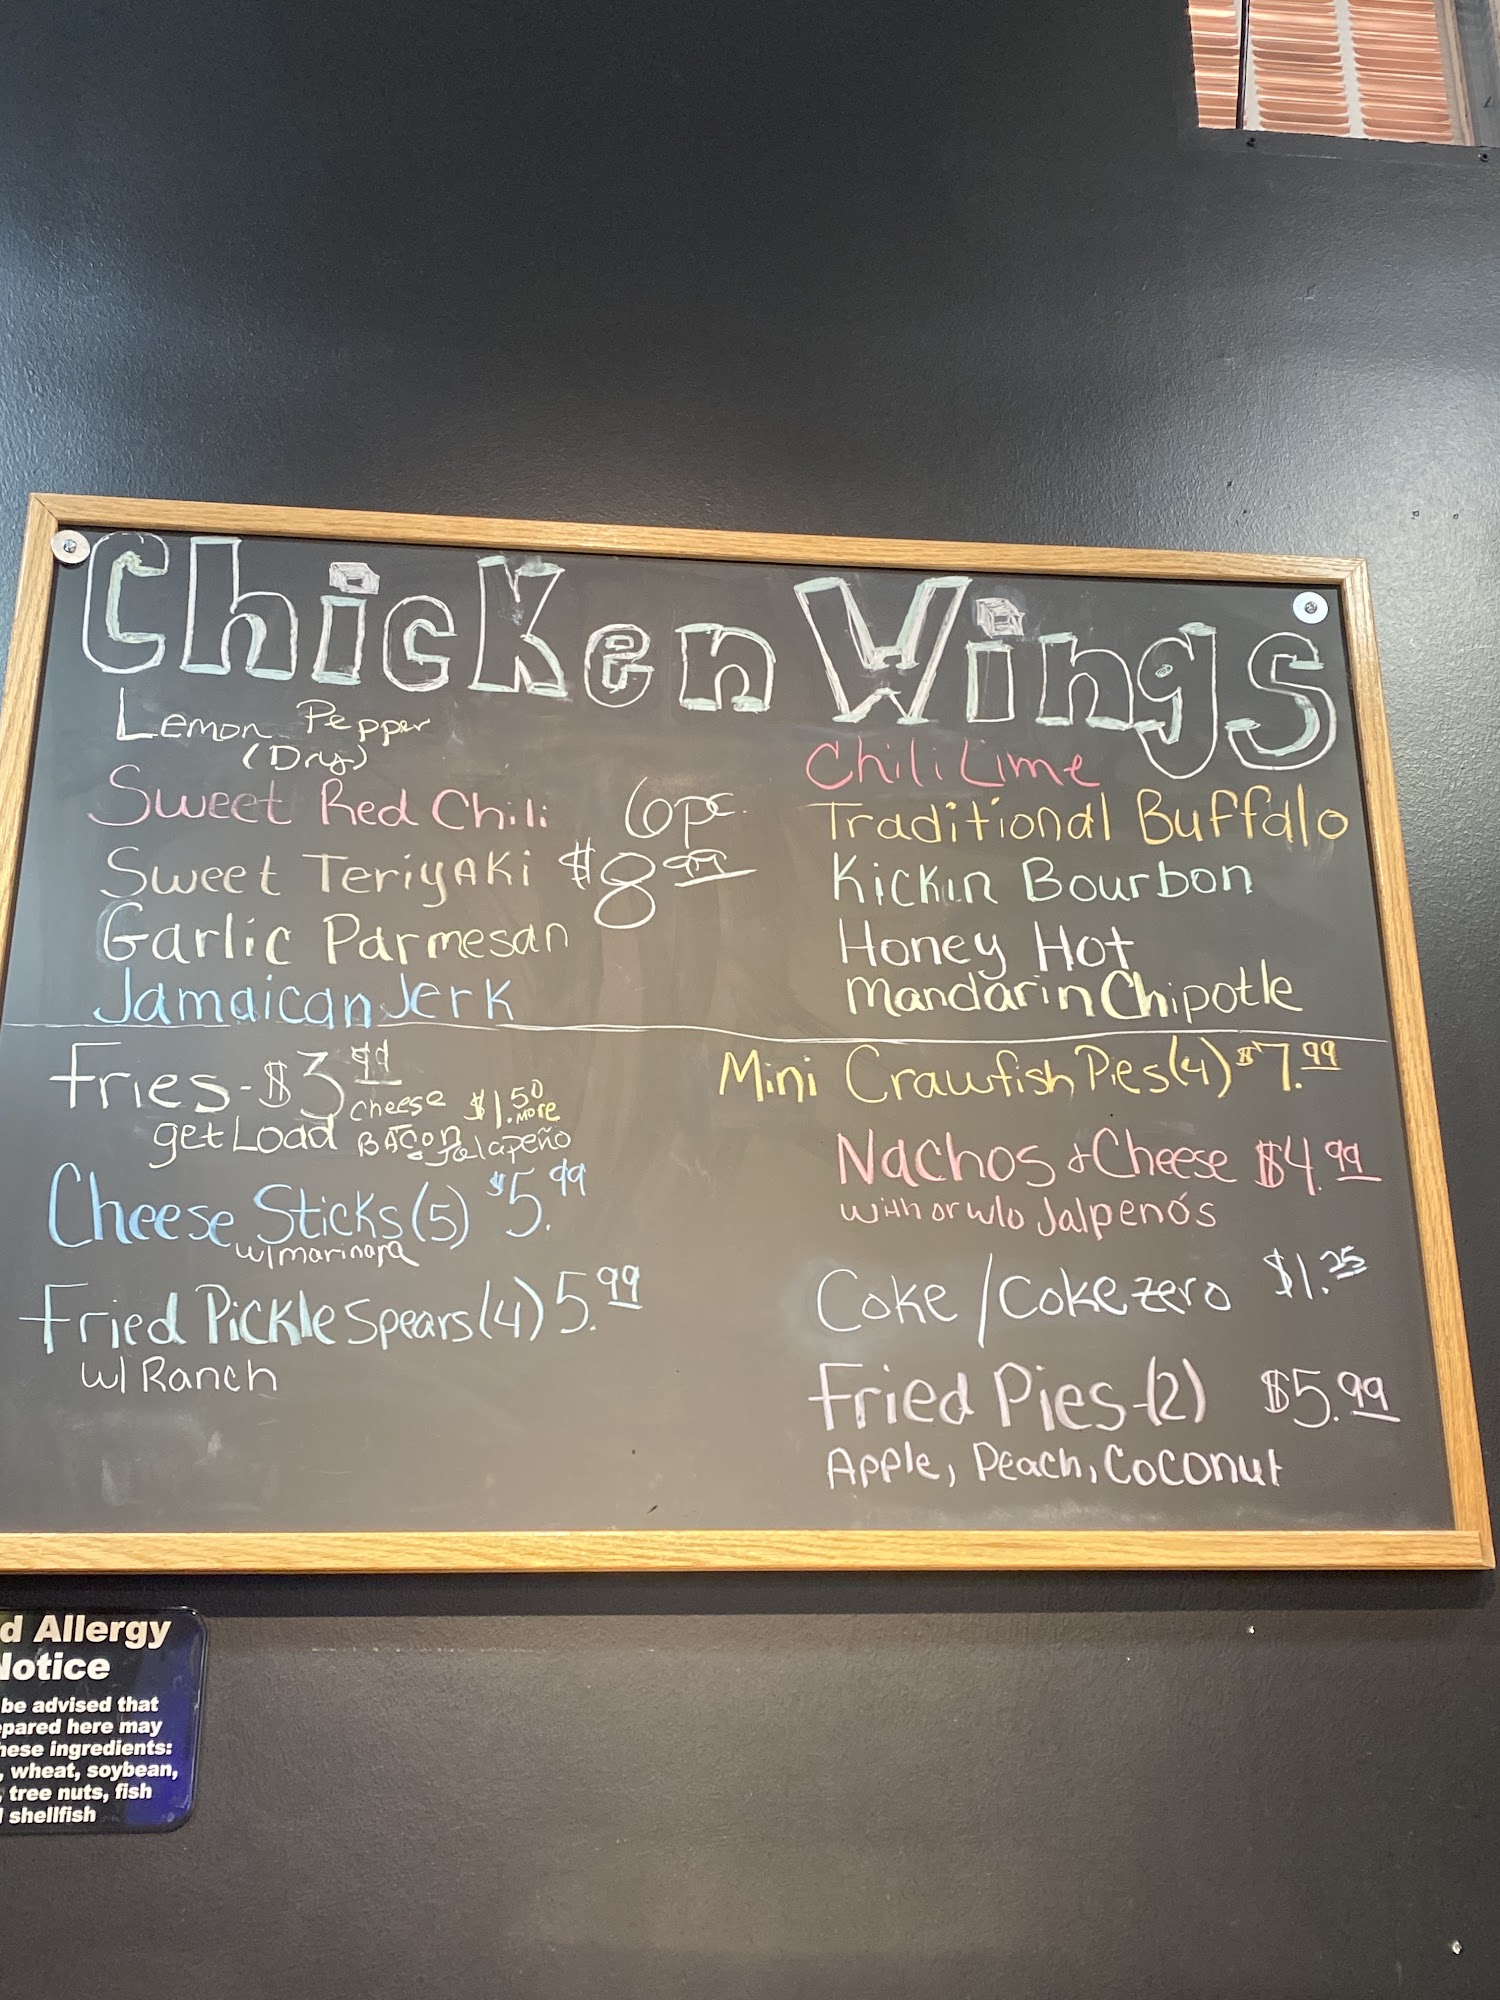 Chicken Wings
Lemon Pepper
(Dry)
Sweet Red Chili
Sweet Teriyaki
Garlic Parmesan
Jamaican Jerk
6pc.
$8.99
Chili Lime
Traditional Buffalo
Kickin Bourbon
Honey Hot
Mandarin Chipotle
Fries - $3.99
get Load
Cheese
Bacon
Jalapeño
$1.50
more
Cheese Sticks (5) $5.99
w/marinara
Fried Pickle Spears (4) 5.99
w/ Ranch
Mini Crawfish Pies (4) $7.99
Nachos & Cheese $4.99
with or w/o Jalpenós
Coke / Coke zero $1.25
Fried Pies - (2) $5.99
Apple, Peach, Coconut
d Allergy
Notice
be advised that
pared here may
hese ingredients:
, wheat, soybean,
, tree nuts, fish
shellfish